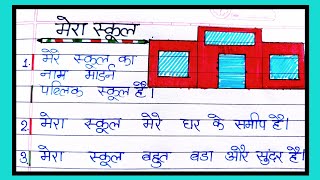 मेरा स्कूल
1. मेरे स्कूल का
नाम मॉडर्न
पब्लिक स्कूल है।
2. मेरा स्कूल मेरे घर के समीप है।
3. मेरा स्कूल बहुत बडा और सुंदर है।